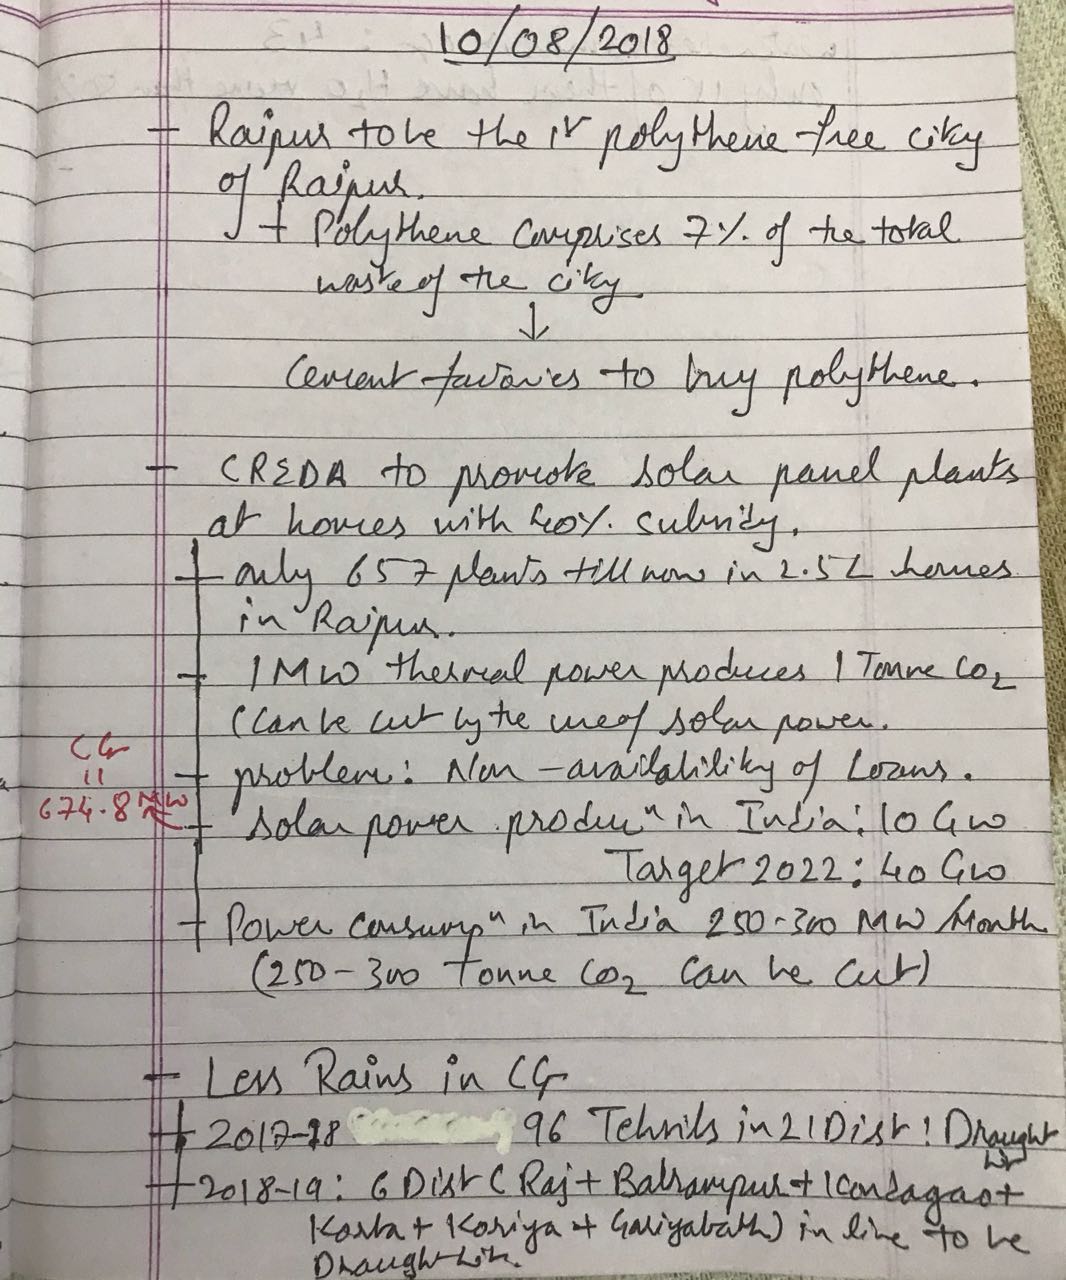 10/08/2018
Raipur to be the 1st polythene-free city
of Raipur.
Polythene comprises 7% of the total
waste of the city
↓
Cement factories to buy polythene.
CREDA to promote solar panel plants
at homes with 40% subsidy.
only 657 plants till now in 2.5L homes
in Raipur.
1MW thermal power produces 1 Tonne CO2
(Can be cut by the use of solar power.
problem: Non-availability of Loans.
CG
11
674.8 MW
Solar power producn in India: 10 GW
Target 2022: 40 GW
Power consumpn in India 250-300 MW/Month
(250-300 Tonne CO2 can be cut)
Less Rains in CG
2017-18 96 Tehsils in 21 Dist: Draught
hit
2018-19: 6 Dist (Raj + Balrampur + Kondagao +
Korba + Koriya + Gariyabath) in line to be
Draught-hit.